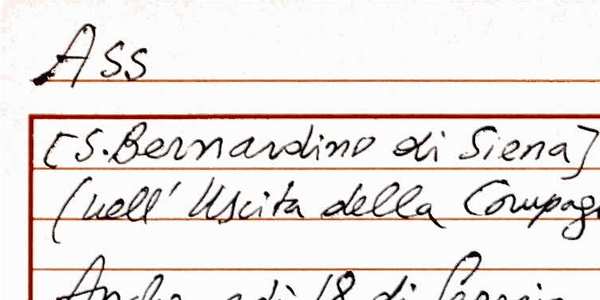 Ass
[S. Bernardino di Siena]
(nell' Uscita della Compag
adì 18 di